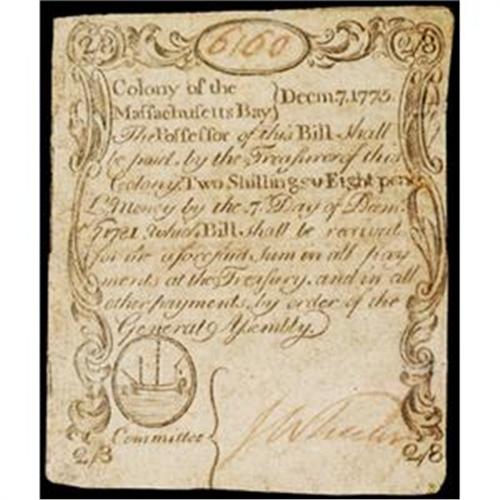 2/8 6160 2/8
Colony of the
Massachusetts Bay } Decem. 7. 1775.
The Possessor of this Bill shall
be paid, by the Treasurer of this
Colony, Two Shillings & Eight penc
L. Money by the 7. Day of Decem.
1781. which Bill shall be receiv'd
for the aforesaid sum in all pay
ments at the Treasury, and in all
other payments, by order of the
General Assembly.
Committee
2/8 2/8